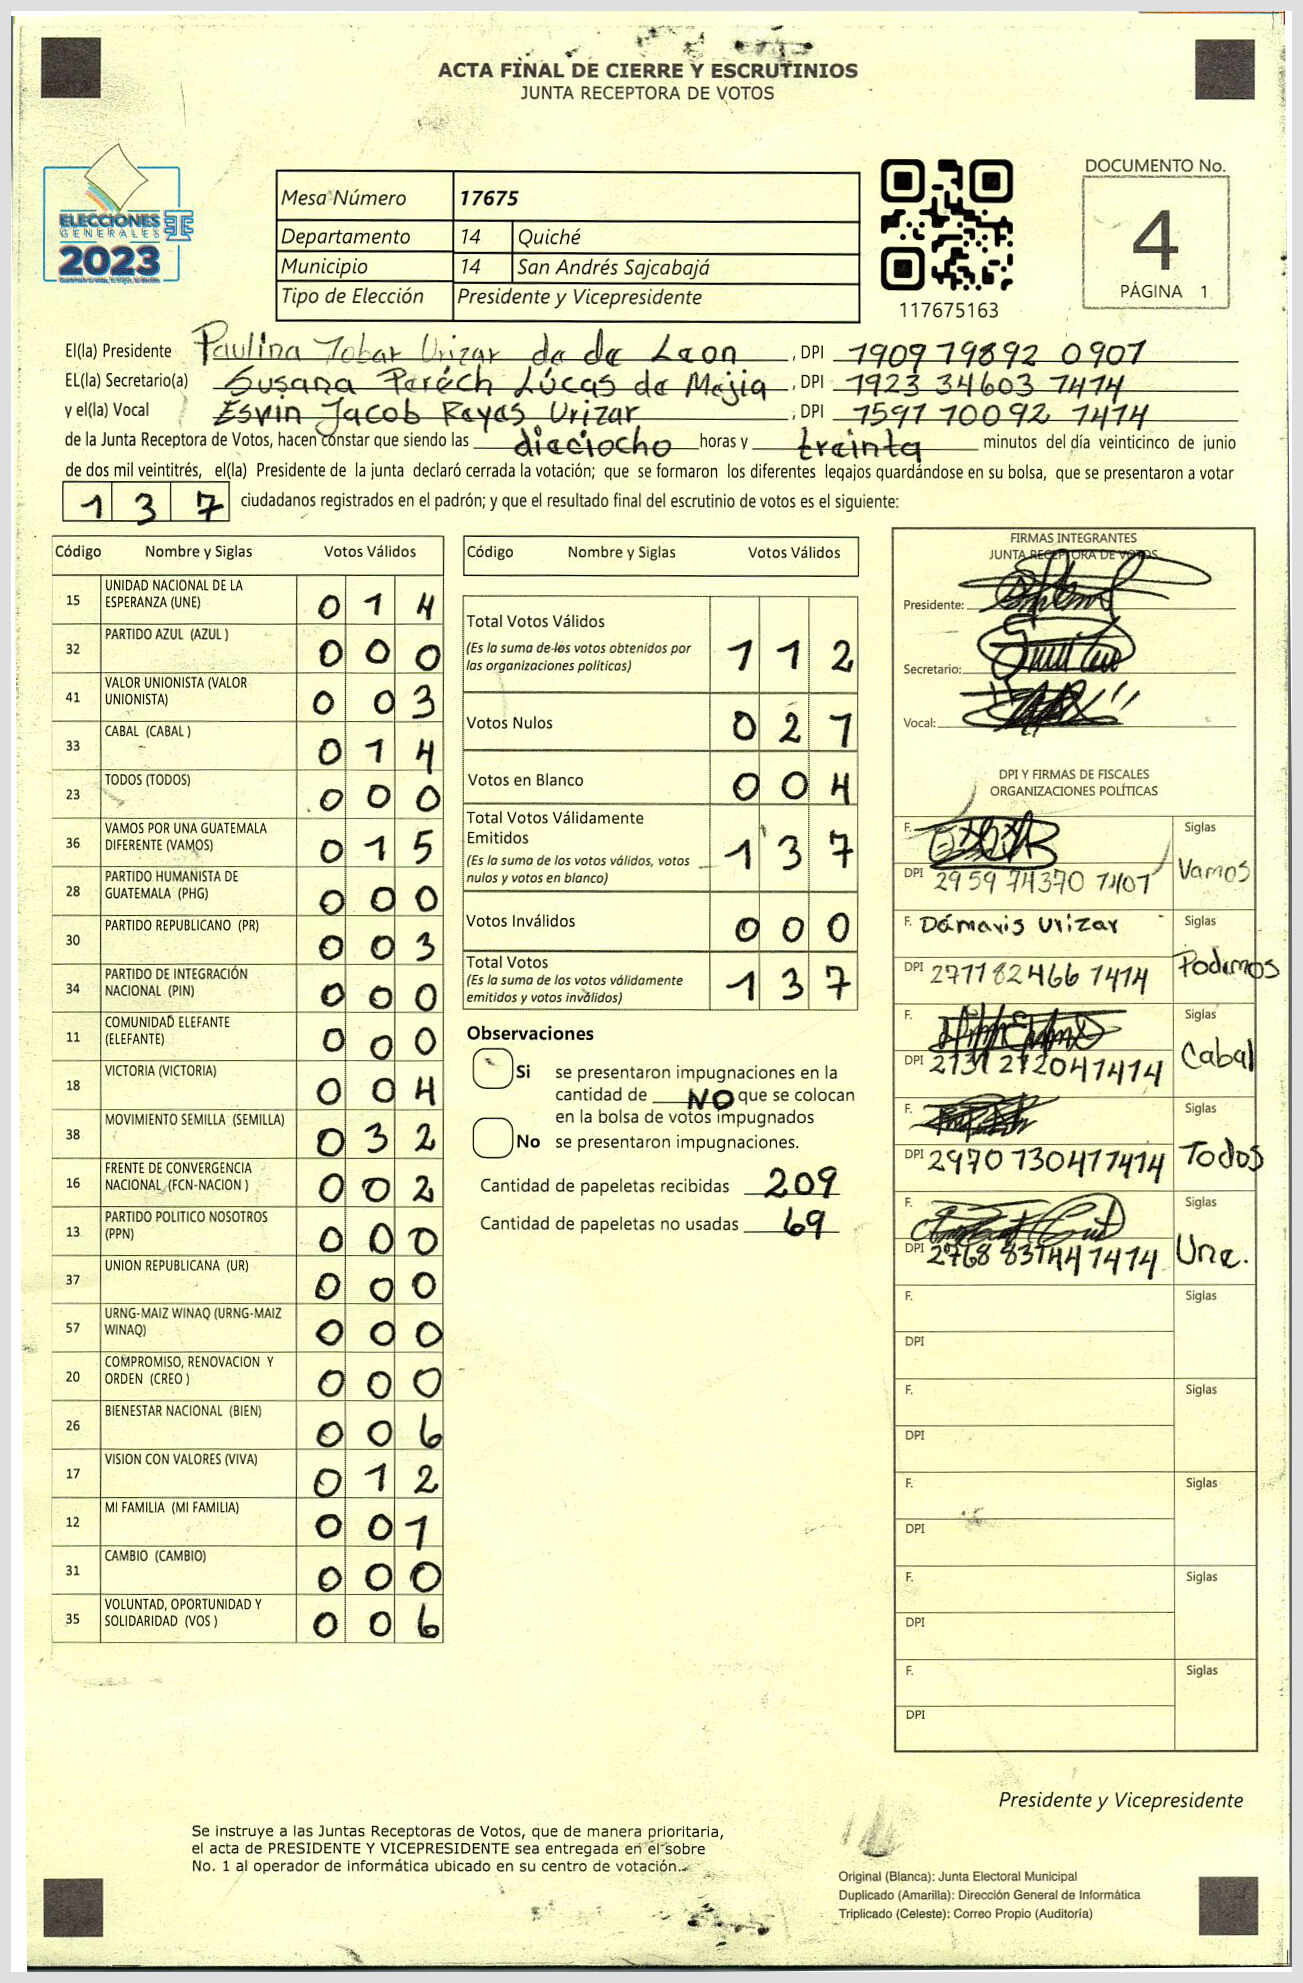 ACTA FINAL DE CIERRE Y ESCRUTINIOS
JUNTA RECEPTORA DE VOTOS
ELECCIONES
GENERALES
2023
Mesa Número 17675
Departamento 14 Quiché
Municipio 14 San Andrés Sajcabajá
Tipo de Elección Presidente y Vicepresidente
117675163
DOCUMENTO No.
4
PÁGINA 1
El(la) Presidente Paulina Tobar Urizar de de Leon , DPI 1909 79892 0901
EL(la) Secretario(a) Susana Peréch Lúcas de Mejia , DPI 1923 34603 1414
y el(la) Vocal Esvin Jacob Reyes Urizar , DPI 1591 10092 1414
de la Junta Receptora de Votos, hacen constar que siendo las dieciocho horas y treinta minutos del día veinticinco de junio
de dos mil veintitrés, el(la) Presidente de la junta declaró cerrada la votación; que se formaron los diferentes legajos guardándose en su bolsa, que se presentaron a votar
1 3 7 ciudadanos registrados en el padrón; y que el resultado final del escrutinio de votos es el siguiente:
Código Nombre y Siglas Votos Válidos
15 UNIDAD NACIONAL DE LA
ESPERANZA (UNE) 0 1 4
32 PARTIDO AZUL (AZUL ) 0 0 0
41 VALOR UNIONISTA (VALOR
UNIONISTA) 0 0 3
33 CABAL (CABAL ) 0 1 4
23 TODOS (TODOS) 0 0 0
36 VAMOS POR UNA GUATEMALA
DIFERENTE (VAMOS) 0 1 5
28 PARTIDO HUMANISTA DE
GUATEMALA (PHG) 0 0 0
30 PARTIDO REPUBLICANO (PR) 0 0 3
34 PARTIDO DE INTEGRACIÓN
NACIONAL (PIN) 0 0 0
11 COMUNIDAD ELEFANTE
(ELEFANTE) 0 0 0
18 VICTORIA (VICTORIA) 0 0 4
38 MOVIMIENTO SEMILLA (SEMILLA) 0 3 2
16 FRENTE DE CONVERGENCIA
NACIONAL (FCN-NACION ) 0 0 2
13 PARTIDO POLITICO NOSOTROS
(PPN) 0 0 0
37 UNION REPUBLICANA (UR) 0 0 0
57 URNG-MAIZ WINAQ (URNG-MAIZ
WINAQ) 0 0 0
20 COMPROMISO, RENOVACION Y
ORDEN (CREO ) 0 0 0
26 BIENESTAR NACIONAL (BIEN) 0 0 6
17 VISION CON VALORES (VIVA) 0 1 2
12 MI FAMILIA (MI FAMILIA) 0 0 1
31 CAMBIO (CAMBIO) 0 0 0
35 VOLUNTAD, OPORTUNIDAD Y
SOLIDARIDAD (VOS ) 0 0 6
Código Nombre y Siglas Votos Válidos
Total Votos Válidos
(Es la suma de los votos obtenidos por
las organizaciones políticas) 1 1 2
Votos Nulos 0 2 1
Votos en Blanco 0 0 4
Total Votos Válidamente
Emitidos
(Es la suma de los votos válidos, votos
nulos y votos en blanco) 1 3 7
Votos Inválidos 0 0 0
Total Votos
(Es la suma de los votos válidamente
emitidos y votos inválidos) 1 3 7
Observaciones
Si se presentaron impugnaciones en la
cantidad de NO que se colocan
en la bolsa de votos impugnados
No se presentaron impugnaciones.
Cantidad de papeletas recibidas 209
Cantidad de papeletas no usadas 69
FIRMAS INTEGRANTES
JUNTA RECEPTORA DE VOTOS
Presidente:
Secretario:
Vocal:
DPI Y FIRMAS DE FISCALES
ORGANIZACIONES POLÍTICAS
F. Siglas
DPI 2959 74370 1407 Vamos
F. Dámaris Urizar Siglas
DPI 2711 82466 1414 Podemos
F. Siglas
DPI 2731 21204 1414 Cabal
F. Siglas
DPI 2970 13041 1414 Todos
F. Siglas
DPI 2768 83144 1414 Une.
F. Siglas
DPI
F. Siglas
DPI
F. Siglas
DPI
F. Siglas
DPI
F. Siglas
DPI
Presidente y Vicepresidente
Se instruye a las Juntas Receptoras de Votos, que de manera prioritaria,
el acta de PRESIDENTE Y VICEPRESIDENTE sea entregada en el sobre
No. 1 al operador de informática ubicado en su centro de votación.
Original (Blanca): Junta Electoral Municipal
Duplicado (Amarilla): Dirección General de Informática
Triplicado (Celeste): Correo Propio (Auditoría)